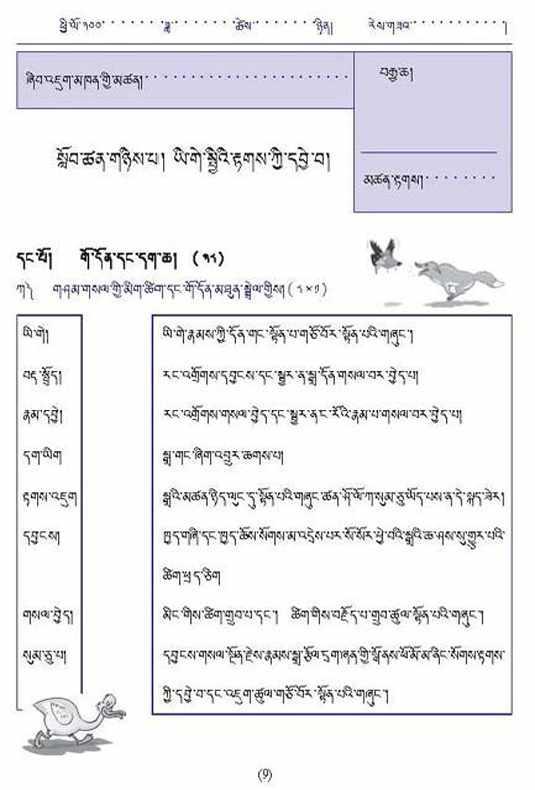 ཕྱི་ལོ་༢༠༠་་་་་་་་ཟླ་་་་་་་་་ཚེས་་་་་་་་ཉིན། རེས་གཟའ་་་་་་་་་་་།
ཞིབ་འཇུག་མཁན་གྱི་མཚན།་་་་་་་་་་་་་་་་་་་་་་་
བརྒྱ་ཆ།
སློབ་ཚན་གཉིས་པ། ཡི་གེ་སྤྱིའི་རྟགས་ཀྱི་དབྱེ་བ།
མཚན་རྟགས།་་་་་་་་
དང་པོ། གོ་དོན་དང་དག་ཆ། (༡༨)
ཀ༽ གཤམ་གསལ་གྱི་མིག་ཚིག་དང་གོ་དོན་མཐུན་སྒྲིལ་གྱིས། (༨×༡)
ཡི་གེ།
བརྡ་སྤྲོད།
རྣམ་དབྱེ།
དག་ཡིག
རྟགས་འཇུག
དབྱངས།
གསལ་བྱེད།
སུམ་ཅུ་པ།
ཡི་གེ་རྣམས་ཀྱི་དོན་གང་སྟོན་པ་གཙོ་བོར་སྟོན་པའི་གཞུང་།
རང་འགྲོགས་དབྱངས་དང་སྦྱར་ན་སྒྲ་དོན་གསལ་བར་བྱེད་པ།
རང་འགྲོགས་གསལ་བྱེད་དང་སྦྱར་ན་ང་རོའི་རྣམ་པ་གསལ་བར་བྱེད་པ།
སྒྲ་གང་ཞིག་འབྲུར་ཆགས་པ།
སྒྲའི་མཚན་ཉིད་ལུང་དུ་སྟོན་པའི་གཞུང་ཚན་ཤོ་ལོ་ཀ་སུམ་ཅུ་ཡོད་པས་ན་དེ་སྐད་ཟེར།
ཁྱད་གཞི་དང་ཁྱད་ཆོས་སོགས་མ་འདྲེས་པར་སོ་སོར་ཕྱེ་བའི་སྒྲའི་ཆ་ཤས་སུ་གྱུར་པའི་
ཚིག་ཕྲད་ཅིག
མིང་གིས་ཚིག་གྲུབ་པ་དང་། ཚིག་གིས་བརྗོད་པ་གྲུབ་ཚུལ་སྟོན་པའི་གཞུང་།
དབྱངས་གསལ་སྔོན་རྗེས་རྣམས་སྒྲ་རྩོལ་དྲག་ཞན་གྱི་སྒོ་ནས་ཕོ་མོ་མ་ནིང་སོགས་རྟགས་
ཀྱི་དབྱེ་བ་དང་འཇུག་ཚུལ་གཙོ་བོར་སྟོན་པའི་གཞུང་།
(9)